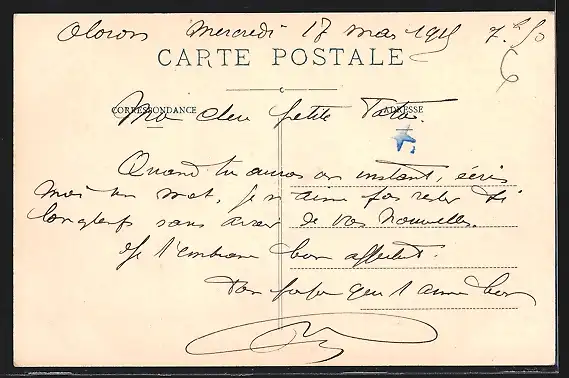 Oloron Mercredi 17 mars 1915 7.h 50
CARTE POSTALE
CORRESPONDANCE ADRESSE
Ma chère petite Tata.
Quand tu auras un instant, écris
moi un mot, je n'aime pas rester si
longtemps sans avoir de vos nouvelles.
Je t'embrasse bien affectt.
Ton qui t'aime bien